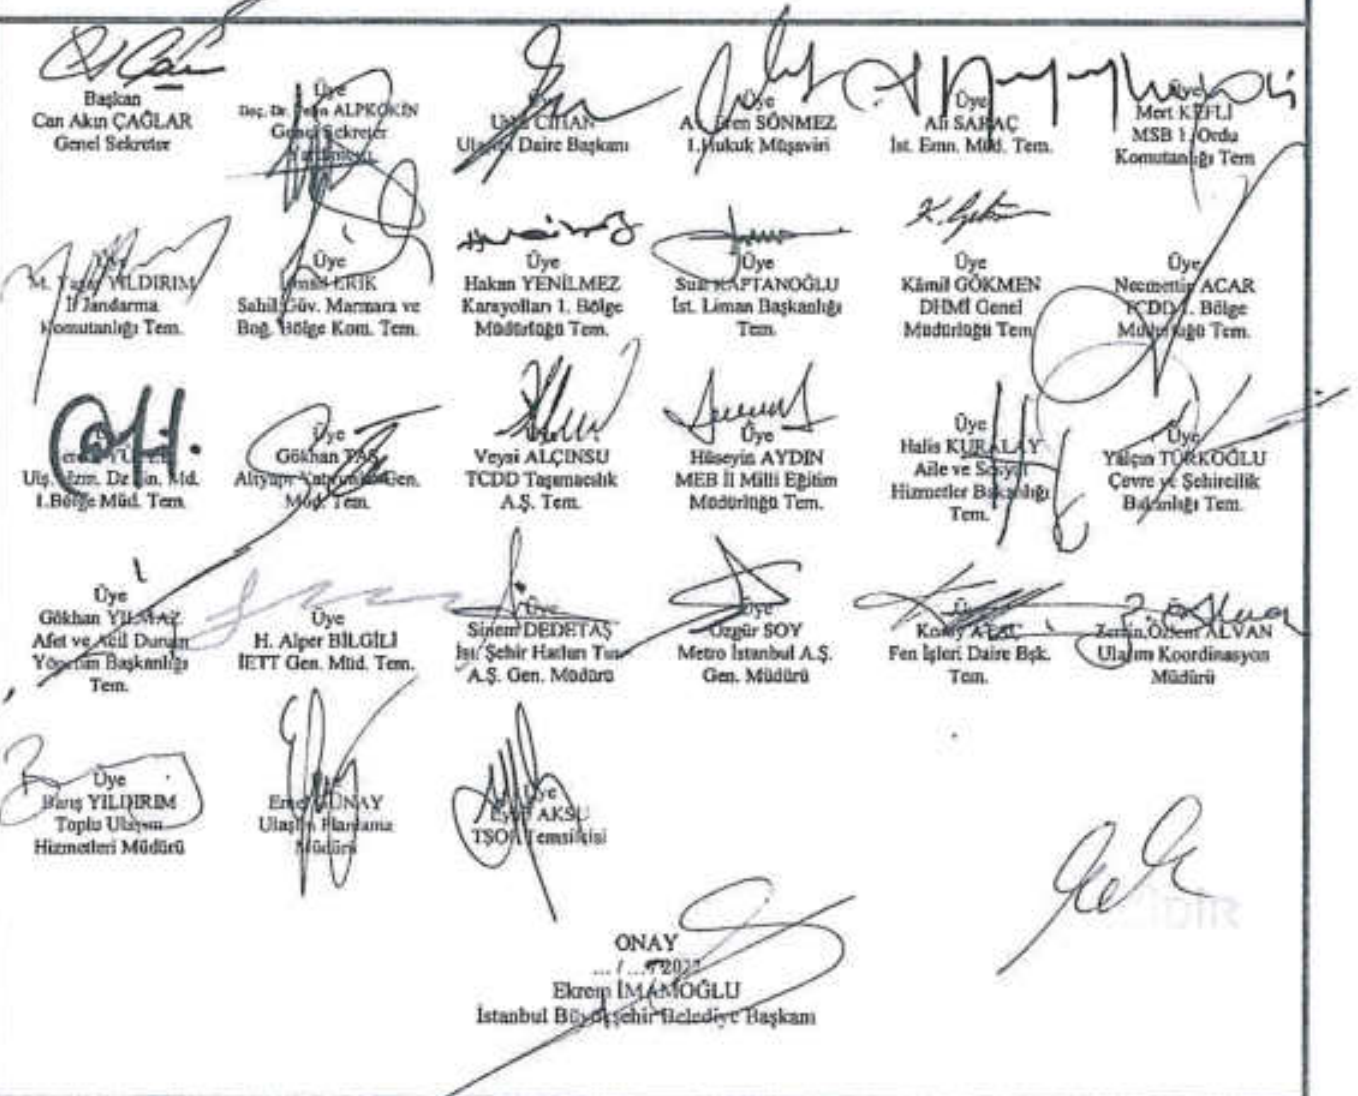 Başkan
Can Akın ÇAĞLAR
Genel Sekreter
Üye
Doç. Dr. Pelin ALPKÖKİN
Genel Sekreter
Yardımcısı
Utku CİHAN
Ulaşım Daire Başkanı
Üye
Av. Eren SÖNMEZ
1.Hukuk Müşaviri
Üye
Ali SARAÇ
İst. Emn. Müd. Tem.
Üye
Mert KEFLİ
MSB 1. Ordu
Komutanlığı Tem
Üye
M. YILDIRIM
İl Jandarma
Komutanlığı Tem.
Üye
ERİK
Sahil Güv. Marmara ve
Boğ. Bölge Kom. Tem.
Üye
Hakan YENİLMEZ
Karayolları 1. Bölge
Müdürlüğü Tem.
Üye
KAPTANOĞLU
İst. Liman Başkanlığı
Tem.
K. Gökmen
Üye
Kâmil GÖKMEN
DHMİ Genel
Müdürlüğü Tem
Üye
Necmettin ACAR
TCDD 1. Bölge
Müdürlüğü Tem.
Md.
1.Bölge Müd. Tem.
Üye
Gökhan TAŞ
Altyapı Yatırımları Gen.
Müd. Tem.
Veysi ALÇINSU
TCDD Taşımacılık
A.Ş. Tem.
Üye
Hüseyin AYDIN
MEB İl Milli Eğitim
Müdürlüğü Tem.
Üye
Halis KURALAY
Aile ve Sosyal
Hizmetler Bakanlığı
Tem.
Üye
Yalçın TÜRKOĞLU
Çevre ve Şehircilik
Bakanlığı Tem.
Üye
Gökhan YILMAZ
Afet ve Acil Durum
Yönetim Başkanlığı
Tem.
Üye
H. Alper BİLGİLİ
İETT Gen. Müd. Tem.
Üye
Sinem DEDETAŞ
İst. Şehir Hatları Tur.
A.Ş. Gen. Müdürü
Üye
Özgür SOY
Metro İstanbul A.Ş.
Gen. Müdürü
Fen İşleri Daire Bşk.
Tem.
Özlem ALVAN
Ulaşım Koordinasyon
Müdürü
Üye
Barış YILDIRIM
Toplu Ulaşım
Hizmetleri Müdürü
GÜNAY
Ulaşım Planlama
Müdürü
Üye
AKSU
Temsilcisi
ONAY
Ekrem İMAMOĞLU
İstanbul Büyükşehir Belediye Başkanı